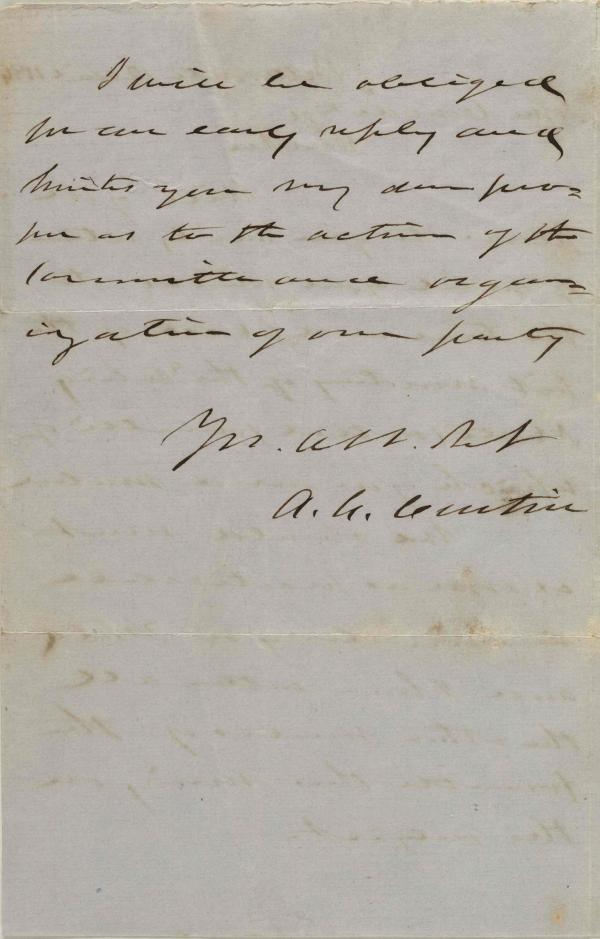 I will be obliged
for an early reply and
you my dear
as to the action of the
Committee and organ=
ization of our party
Yrs.
A. G. Curtin